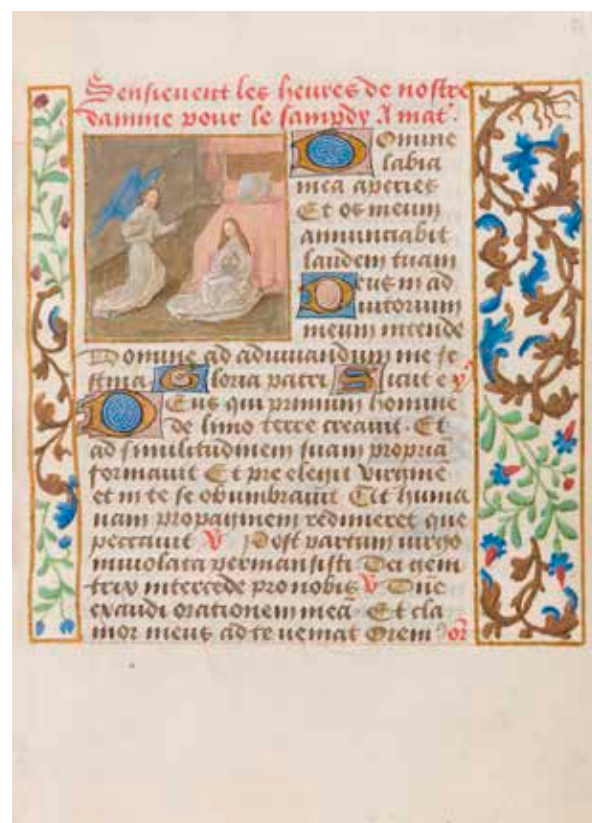 Sensieuent les heures de nostre
damme pour le sampdy A mat'.
Domine
labia
mea aperies
Et os meum
annunciabit
laudem tuam
Deus in ad
iutorium
meum intende
Domine ad adiuuandum me fe
stina Gloria patri Sicut e v
Deus qui primum homine
de limo terre creauit Et
ad similitudinem suam propriā
formauit Et pre elegit virgine
et in te se obumbrauit Ut huma
nam propaginem redimeret que
peccauit V Post partum uirgo
inuiolata permansisti Dei geni
trix intercede pro nobis V Dn̄e
exaudi orationem meā Et cla
mor meus ad te ueniat Orem' or